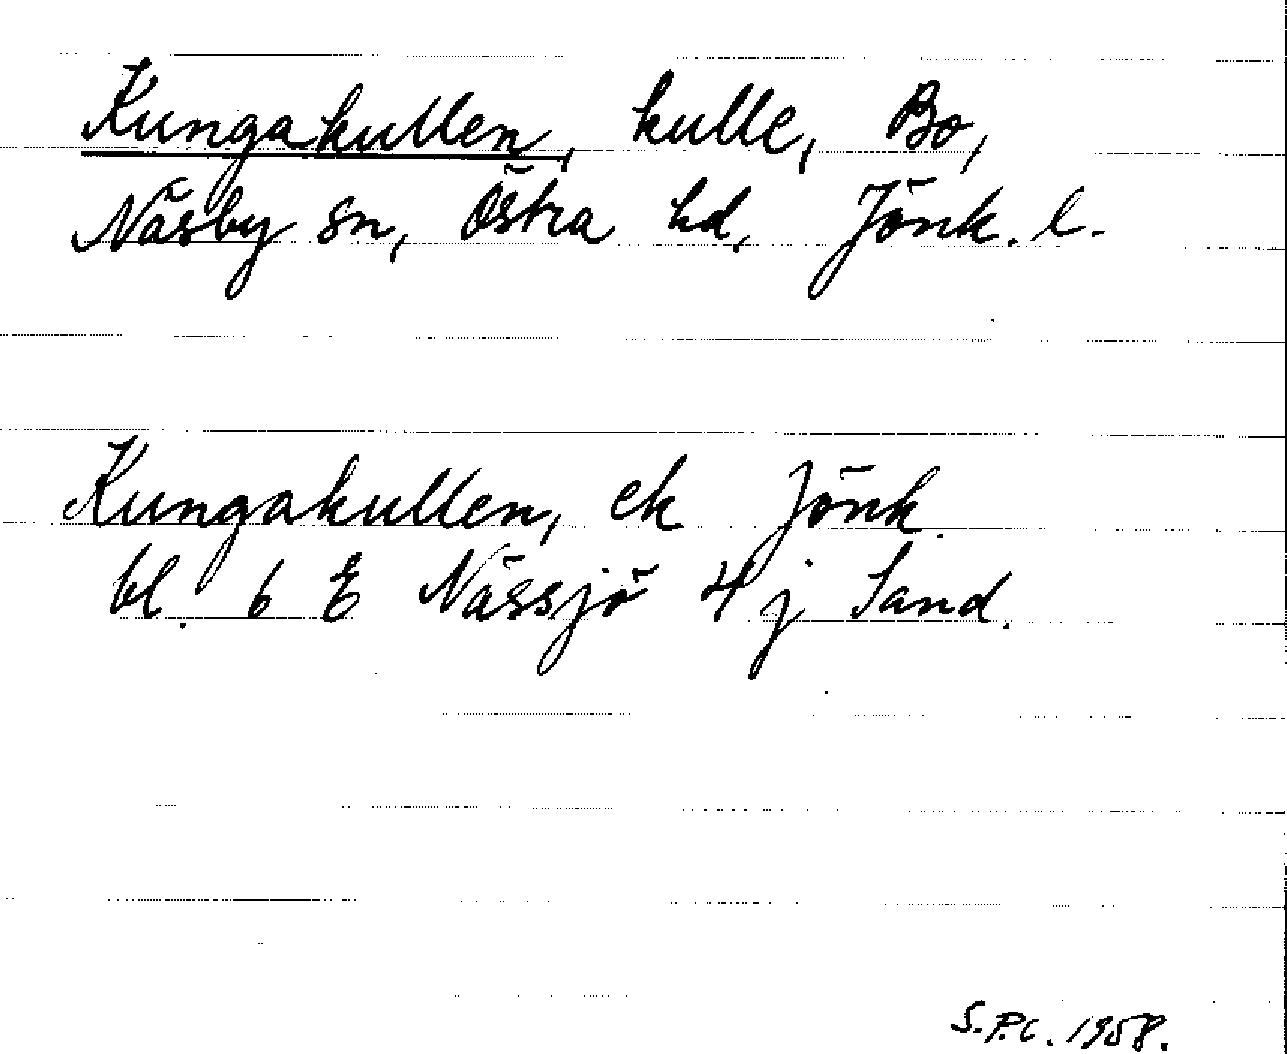 Kungakullen, kulle, Bo,
Näsby sn, Östra hd, Jönk. l.
Kungakullen, ek Jönk.
bl. 6 E Nässjö 4 j Sand.
S.P.C. 1958.